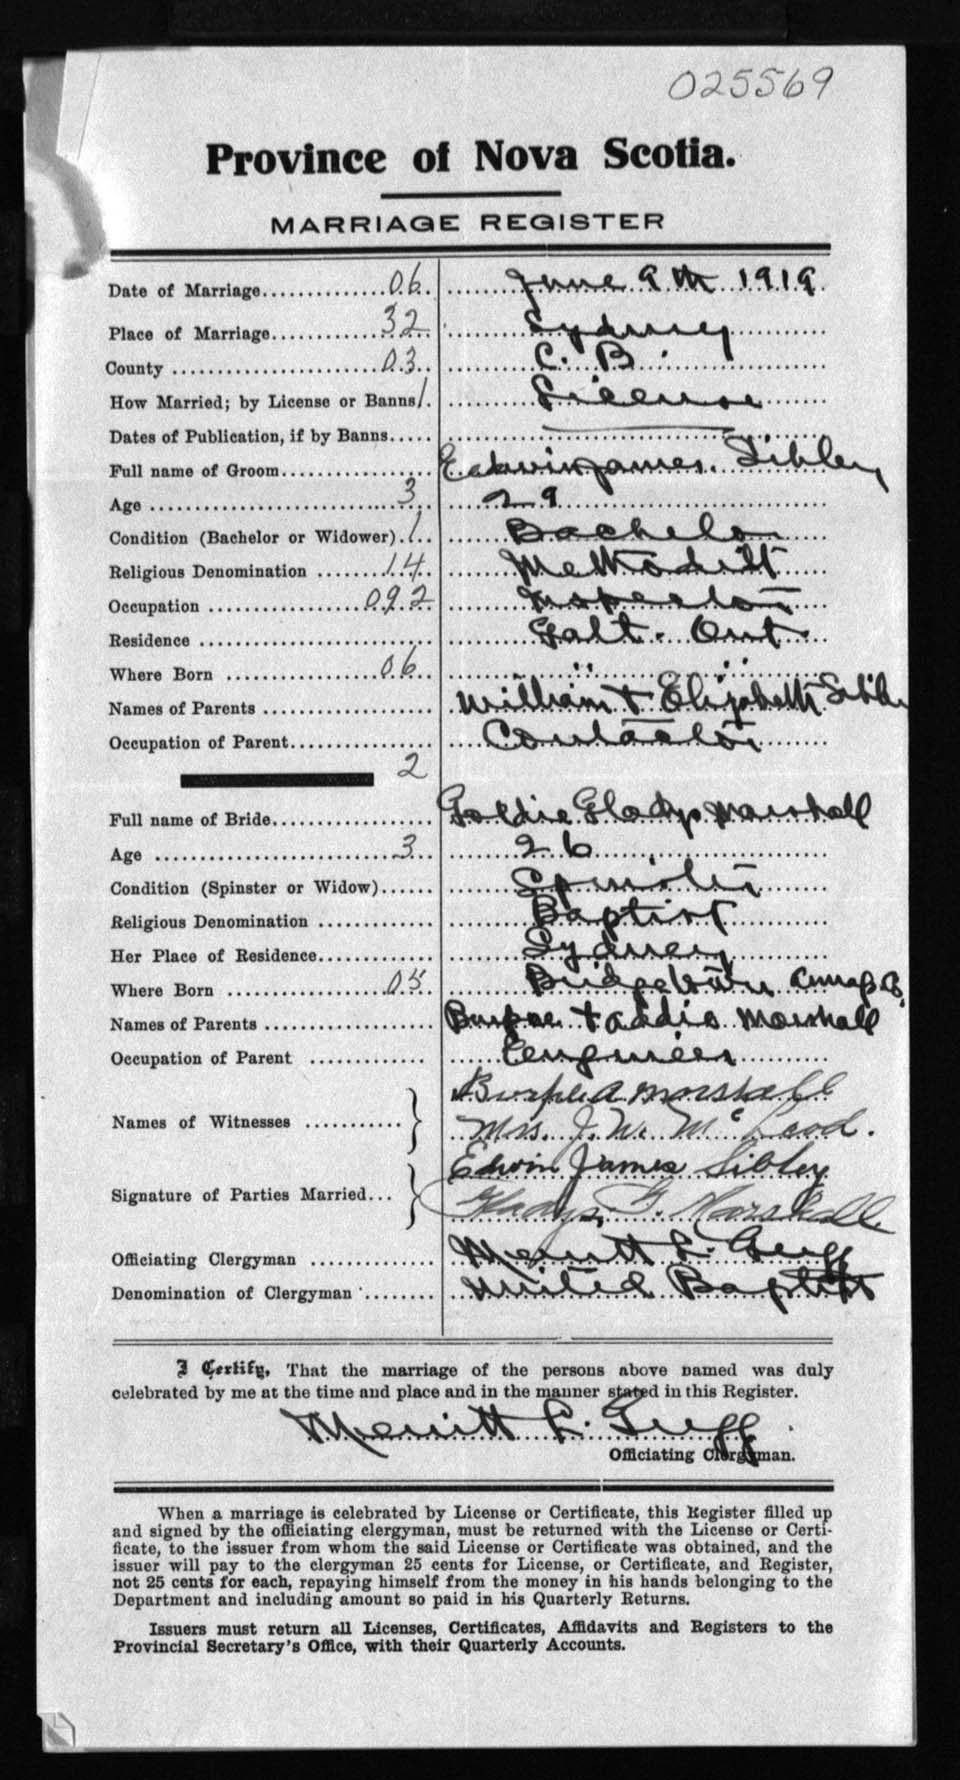 025569
Province of Nova Scotia.
MARRIAGE REGISTER
Date of Marriage 06 June 9th 1919
Place of Marriage 32 Sydney
County 03 C. B.
How Married; by License or Banns 1 License
Dates of Publication, if by Banns
Full name of Groom Edwin James Sibley
Age 3 29
Condition (Bachelor or Widower) 1 Bachelor
Religious Denomination 14 Methodist
Occupation 092 Inspector
Residence Galt. Ont.
Where Born 06 " "
Names of Parents William + Elizabeth Sibley
Occupation of Parent Contractor
2
Full name of Bride Goldie Gladys Marshall
Age 3 26
Condition (Spinster or Widow) Spinster
Religious Denomination Baptist
Her Place of Residence Sydney
Where Born 05 Bridgetown Annap. Co.
Names of Parents Burpee + Addie Marshall
Occupation of Parent Engineer
Names of Witnesses } Burpee A Marshall
Mrs. J. W. McLeod.
Signature of Parties Married } Edwin James Sibley
Gladys G. Marshall.
Officiating Clergyman Merritt L. Gregg
Denomination of Clergyman United Baptist
I Certify, That the marriage of the persons above named was duly
celebrated by me at the time and place and in the manner stated in this Register.
Merritt L. Gregg
Officiating Clergyman.
When a marriage is celebrated by License or Certificate, this Register filled up
and signed by the officiating clergyman, must be returned with the License or Certi-
ficate, to the issuer from whom the said License or Certificate was obtained, and the
issuer will pay to the clergyman 25 cents for License, or Certificate, and Register,
not 25 cents for each, repaying himself from the money in his hands belonging to the
Department and including amount so paid in his Quarterly Returns.
Issuers must return all Licenses, Certificates, Affidavits and Registers to the
Provincial Secretary's Office, with their Quarterly Accounts.